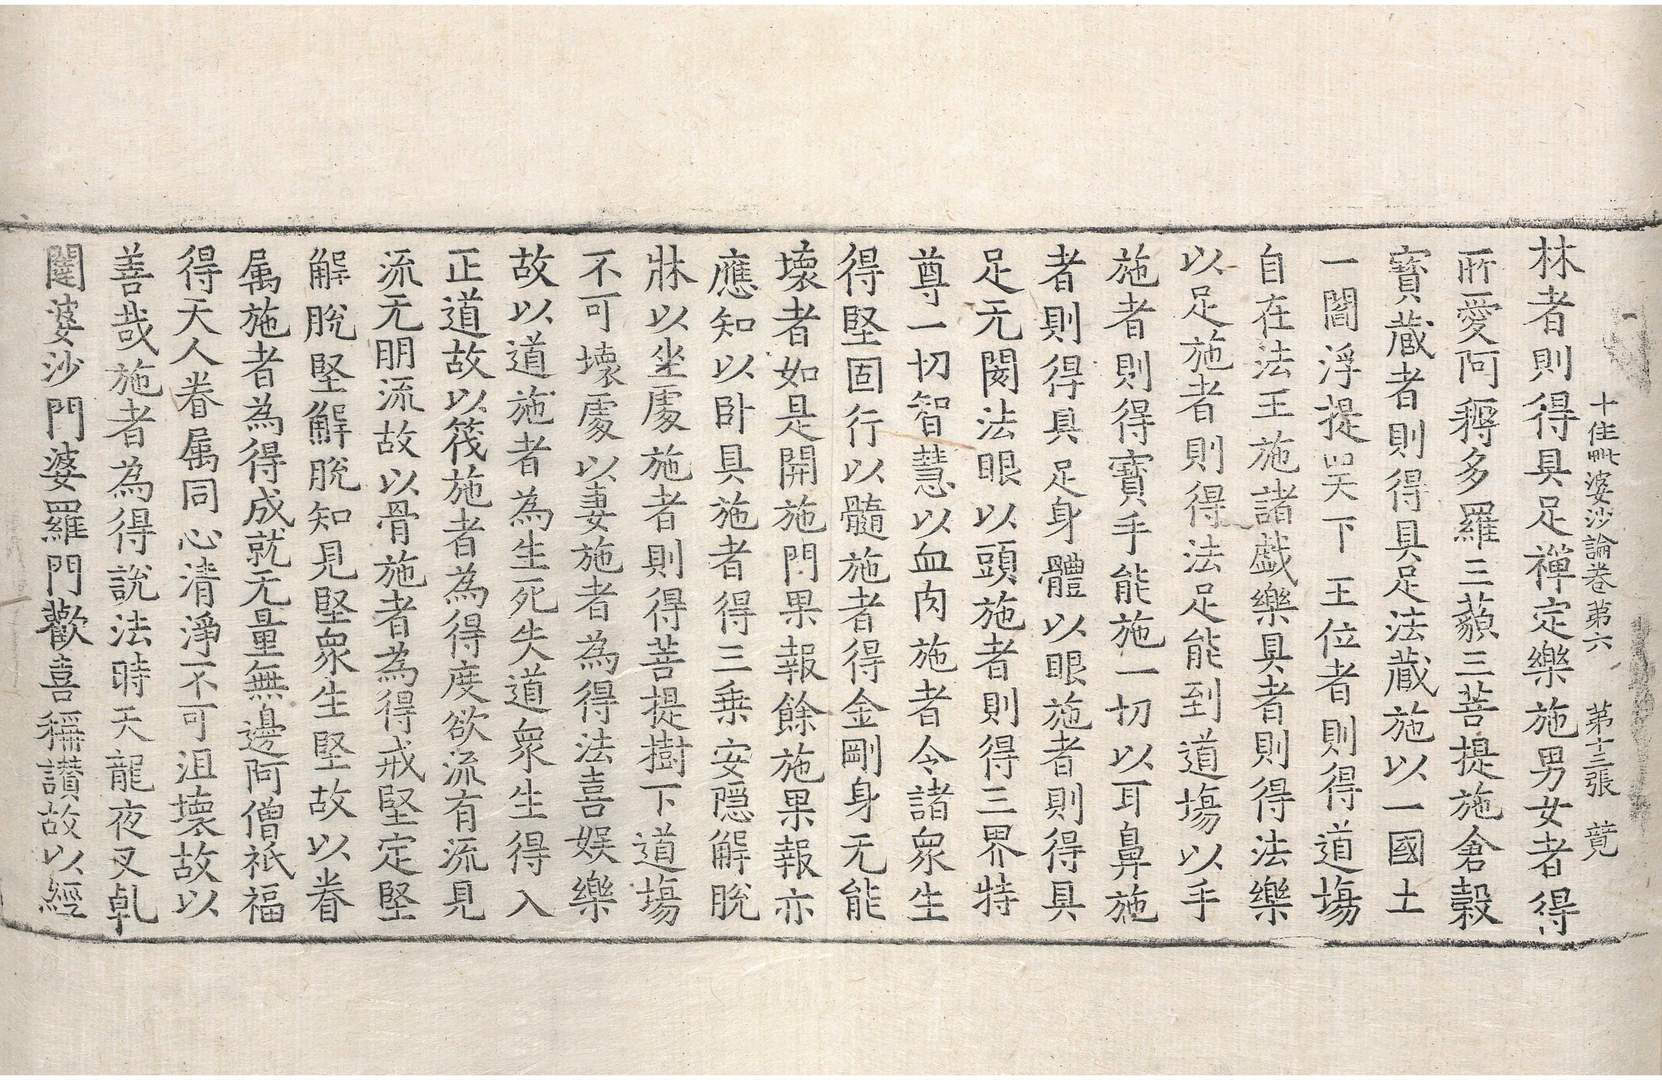 十住毗婆沙論卷第六　第十三張　竟
林者則得具足禪定樂施男女者得
所愛阿耨多羅三藐三菩提施倉穀
寶藏者則得具足法藏施以一國土
一閻浮提四天下王位者則得道場
自在法王施諸戲樂具者則得法樂
以足施者則得法足能到道場以手
施者則得寶手能施一切以耳鼻施
者則得具足身體以眼施者則得具
足无閡法眼以頭施者則得三界特
尊一切智慧以血肉施者令諸衆生
得堅固行以髓施者得金剛身无能
壞者如是開施門果報餘施果報亦
應知以卧具施者得三乘安隠解脫
牀以坐處施者則得菩提樹下道場
不可壞處以妻施者為得法喜娱樂
故以道施者為生死失道衆生得入
正道故以筏施者為得度欲流有流見
流无明流故以骨施者為得戒堅定堅
解脫堅解脫知見堅衆生堅故以眷
属施者為得成就无量無邊阿僧祇福
得天人眷属同心清淨不可沮壞故以
善哉施者為得說法時天龍夜叉乹
闥婆沙門婆羅門歡喜稱讃故以經